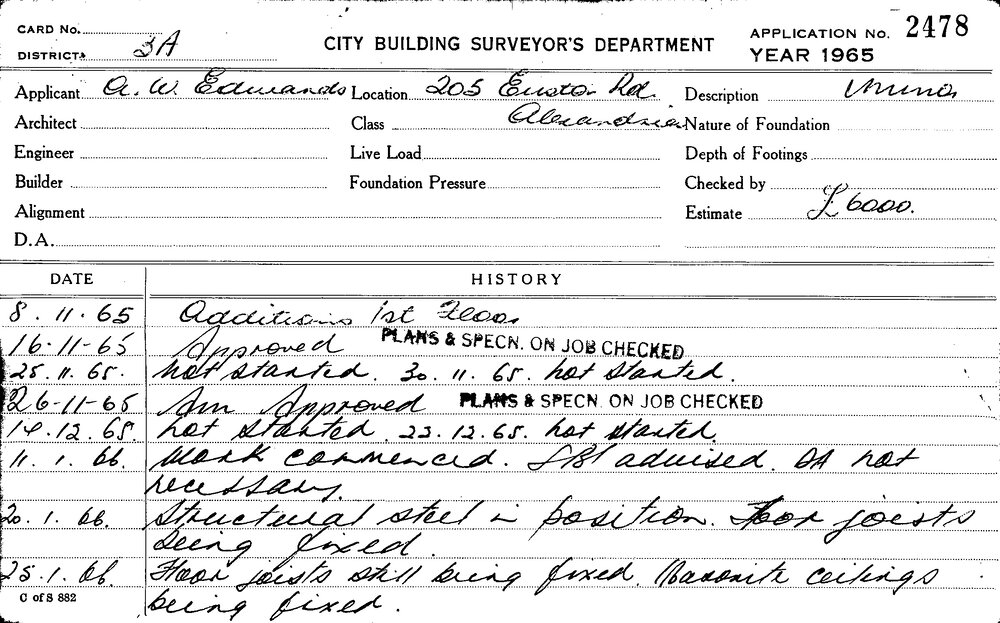 CARD No.
DISTRICT 3A
CITY BUILDING SURVEYOR'S DEPARTMENT
APPLICATION No. 2478
YEAR 1965
Applicant A. W. Edwards Location 205 Euston Rd. Description
Architect Class Alexandria Nature of Foundation
Engineer Live Load Depth of Footings
Builder Foundation Pressure Checked by
Alignment Estimate £6000.
D.A.
DATE HISTORY
8.11.65 Additions 1st Floor
16-11-65 Approved PLANS & SPECN. ON JOB CHECKED
25.11.65. not started. 30.11.65. not started.
26-11-65 Am Approved PLANS & SPECN. ON JOB CHECKED
14.12.65. not started. 23.12.65. not started.
11.1.66. Work commenced. advised. DA not
necessary.
20.1.66. Structural steel in position. Floor joists
being fixed.
25.1.66. Floor joists still being fixed. Masonite ceilings
being fixed.
C of S 882